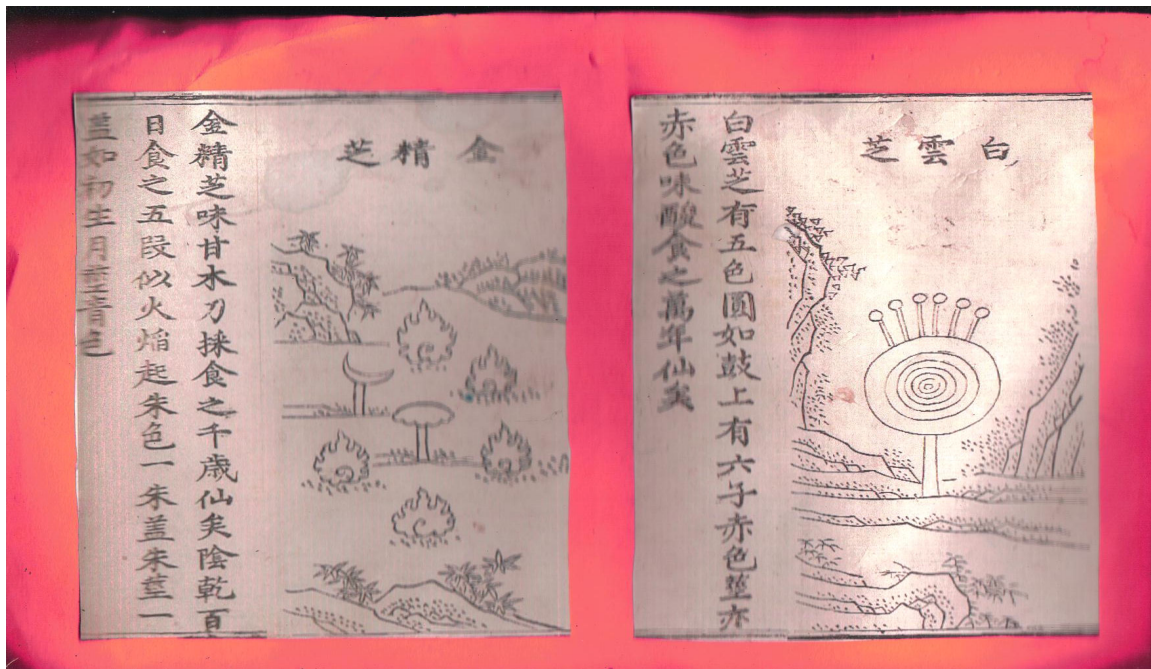 白雲芝
白雲芝有五色圓如鼓上有六子赤色莖亦
赤色味酸食之萬年仙矣
金精芝
金精芝味甘水刀採食之千歳仙矣陰乾百
日食之五段似火焰起朱色一朱盖朱莖一
盖如初生月莖青色